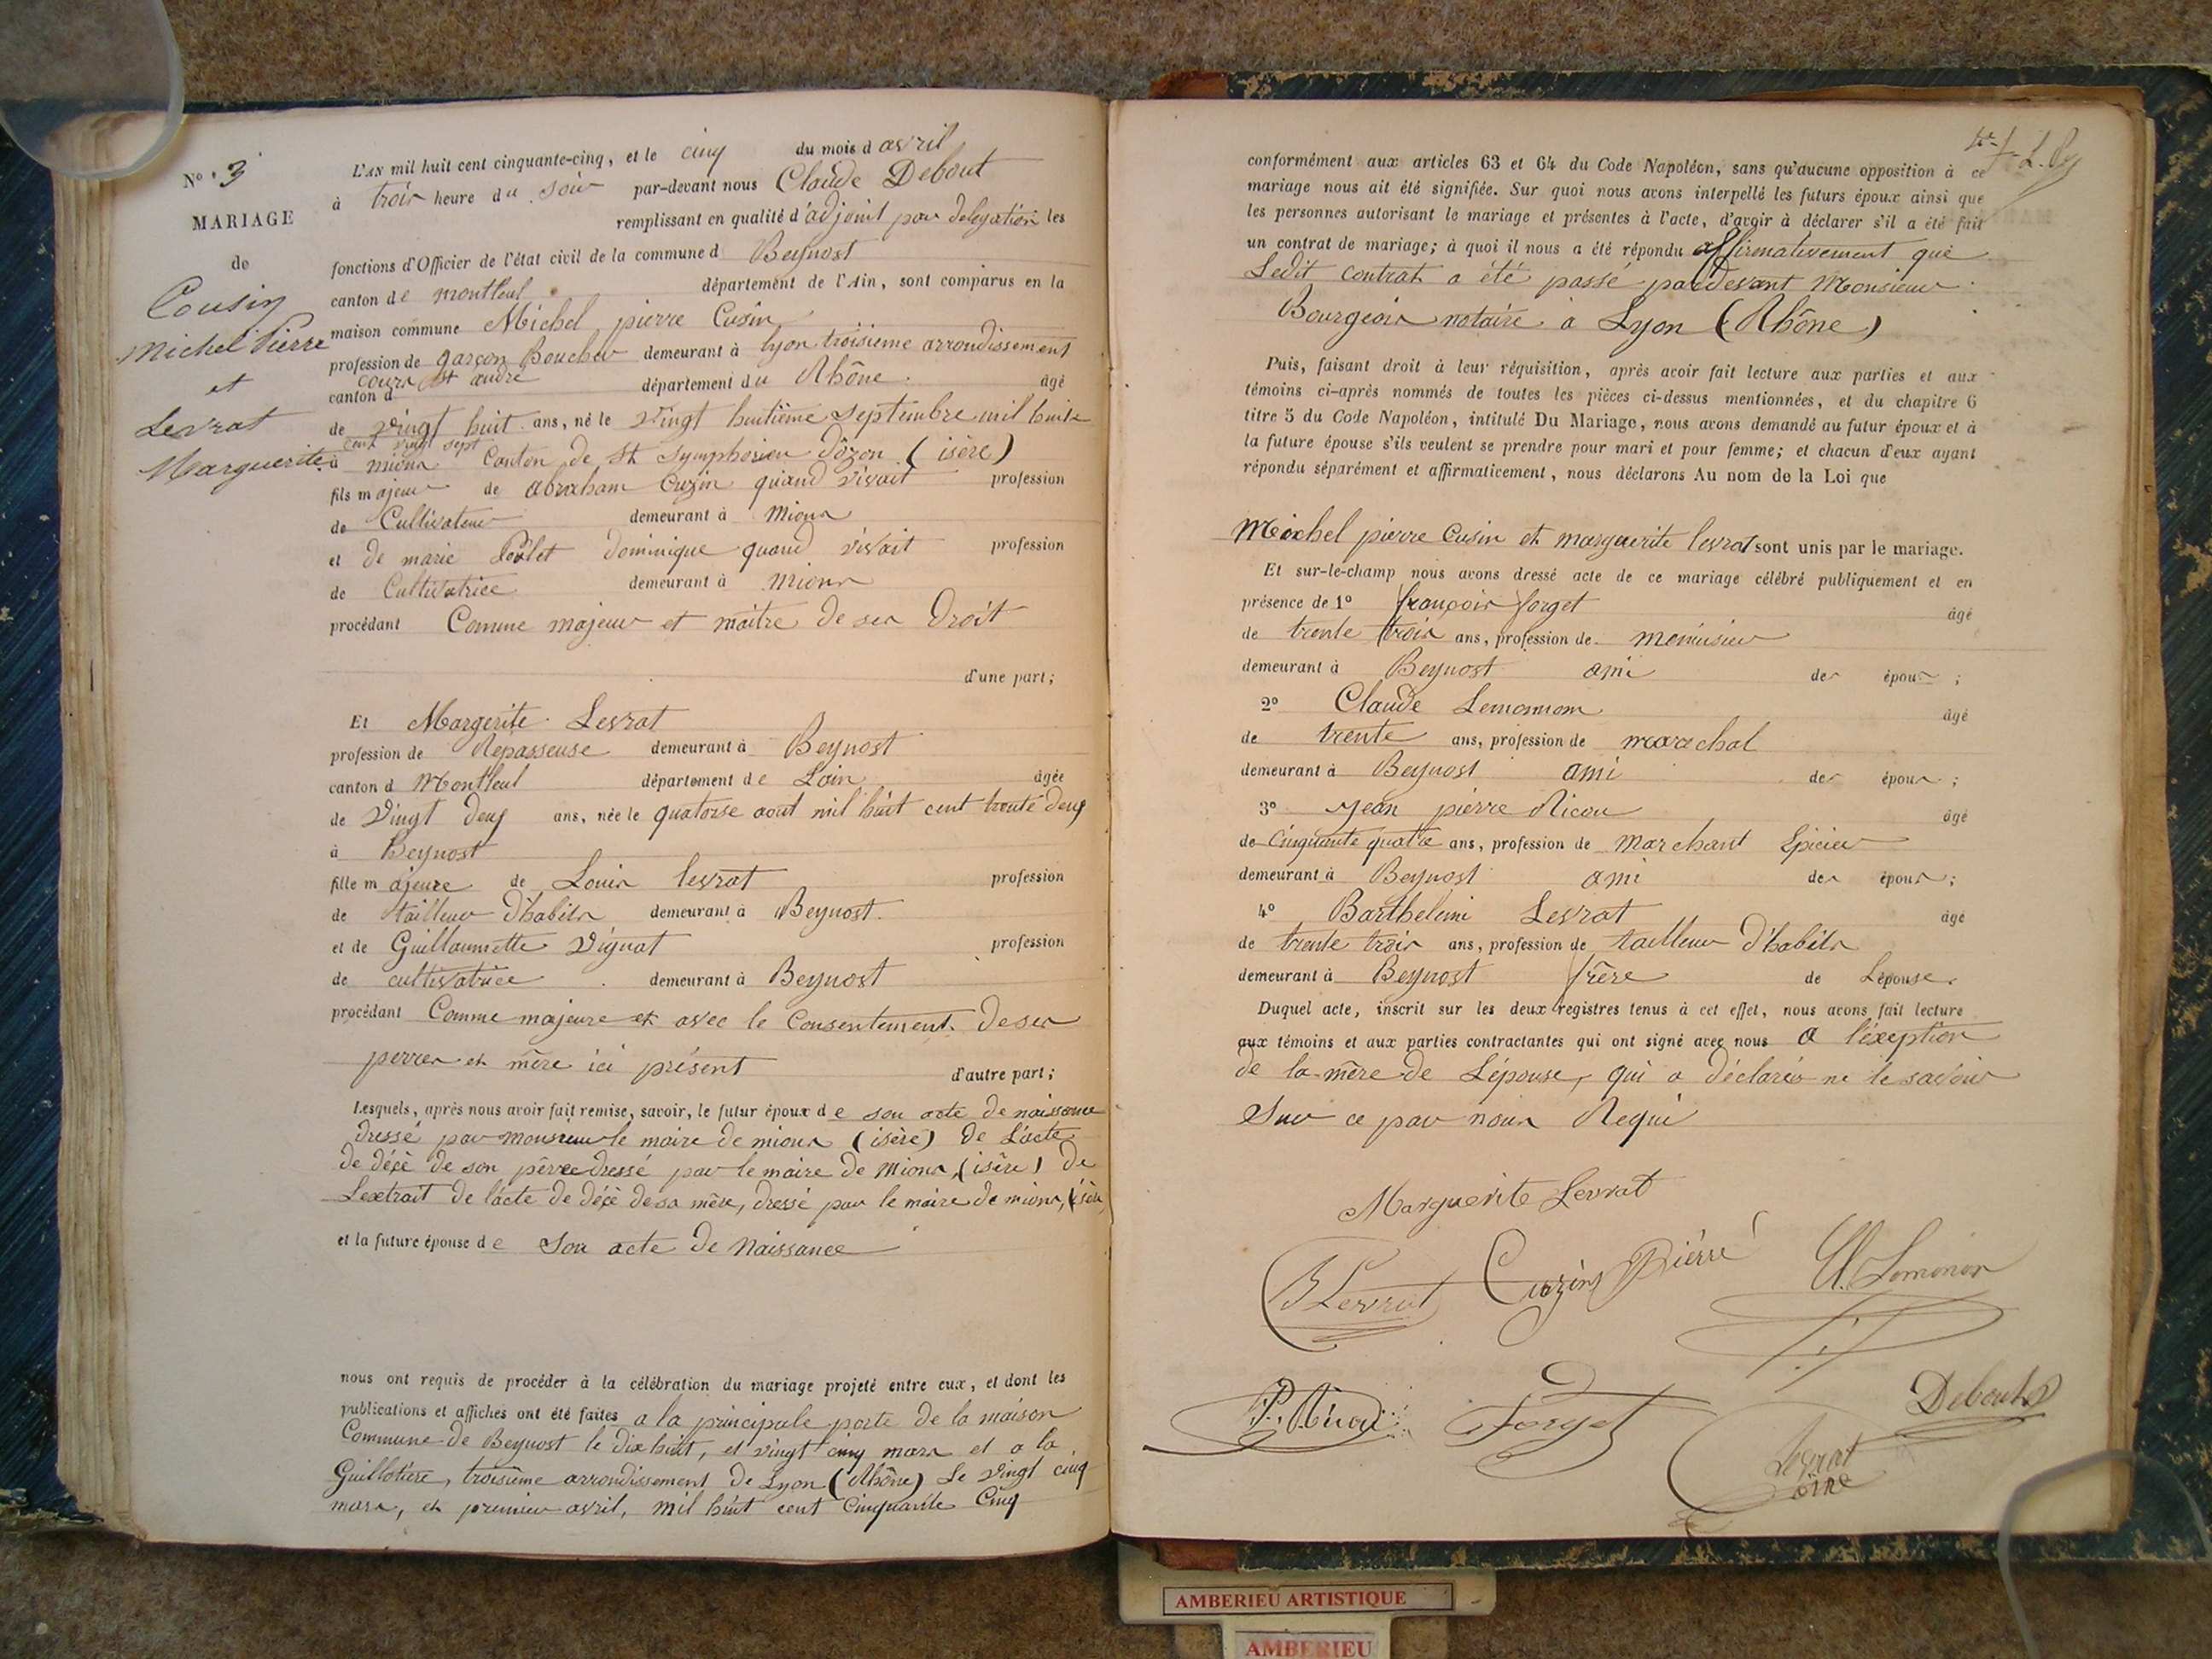 N° 3
MARIAGE
de
Cousin
Michel Pierre
et
Levrat
Marguerite
L'AN mil huit cent cinquante-cinq, et le cinq du mois d avril
à trois heure du soir par-devant nous Claude Debout
remplissant en qualité d'adjoint par delegation les
fonctions d'Officier de l'état civil de la commune d Beynost
canton de montluel département de l'Ain, sont comparus en la
maison commune Michel pierre Cusin
profession de garçon Boucher demeurant à lyon troisieme arrondissement
cours st andré
canton d département du Rhône âgé
de vingt huit ans, né le vingt huitième septembre mil huit
cent vingt sept
à mions Canton de st symphorien d'ozon (isère)
fils majeur de abraham Cuzin quand vivait profession
de Cultivateur demeurant à mions
et de marie Poulet dominique quand vivait profession
de Cultivatrice demeurant à mions
procédant Comme majeur et maître de ses Droit
d'une part;
Et Margerite Levrat
profession de Repasseuse demeurant à Beynost
canton d Montluel département de Lain âgée
de vingt deux ans, née le quatorse aout mil huit cent trente deux
à Beynost
fille majeure de Louis levrat profession
de tailleur d'habits demeurant à Beynost.
et de Guillaumette Vignat profession
de cultivatrice demeurant à Beynost
procédant Comme majeure et avec le Consentement de ses
perres et mère ici présent
d'autre part;
Lesquels, après nous avoir fait remise, savoir, le futur époux de son acte de naissance
dressé par monsieur le maire de mions (isère) de L'acte
de décè de son père dressé par le maire de mions, (isère) de
Lextrait de l'acte de décè de sa mère, dressé par le maire de mions, (isère)
et la future épouse de Son acte de Naissance
nous ont requis de procéder à la célébration du mariage projeté entre eux, et dont les
publications et affiches ont été faites a la principale porte de la maison
Commune de Beynost le dix huit, et vingt cinq mars et a la
Guillotiere, troisième arrondissement de Lyon (Rhône) Le vingt cinq
mars, et premier avril, mil huit cent cinquante Cinq
conformément aux articles 63 et 64 du Code Napoléon, sans qu'aucune opposition à ce
mariage nous ait été signifiée. Sur quoi nous avons interpellé les futurs époux ainsi que
les personnes autorisant le mariage et présentes à l'acte, d'avoir à déclarer s'il a été fait
un contrat de mariage; à quoi il nous a été répondu affirmativement que
Ledit contrat a été passé pardevant Monsieur
Bourgeois notaire à Lyon (Rhône)
Puis, faisant droit à leur réquisition, après avoir fait lecture aux parties et aux
témoins ci-après nommés de toutes les pièces ci-dessus mentionnées, et du chapitre 6
titre 5 du Code Napoléon, intitulé Du Mariage, nous avons demandé au futur époux et à
la future épouse s'ils veulent se prendre pour mari et pour femme; et chacun d'eux ayant
répondu séparément et affirmativement, nous déclarons Au nom de la Loi que
Michel pierre Cusin et marguerite levrat sont unis par le mariage.
Et sur-le-champ nous avons dressé acte de ce mariage célébré publiquement et en
présence de 1° françois forget âgé
de trente trois ans, profession de menuisier
demeurant à Beynost ami des époux;
2° Claude Lemonnom âgé
de trente ans, profession de marechal
demeurant à Beynost ami des époux;
3° Jean pierre Nicou âgé
de Cinquante quatre ans, profession de Marchant Epicier
demeurant à Beynost ami des époux;
4° Barthelemi Levrat âgé
de trente trois ans, profession de tailleur d'habits
demeurant à Beynost frère de Lépouse.
Duquel acte, inscrit sur les deux registres tenus à cet effet, nous avons fait lecture
aux témoins et aux parties contractantes qui ont signé avec nous a l'éxeption
de la mère de L'épouse, qui a déclaréo ne le savoir
Sur ce par nous Requi
Marguerite Levrat
B Levrat Cuzin Pierre Cl. Lomonon
Forget Debout
Levrat
AMBERIEU ARTISTIQUE
AMBERIEU